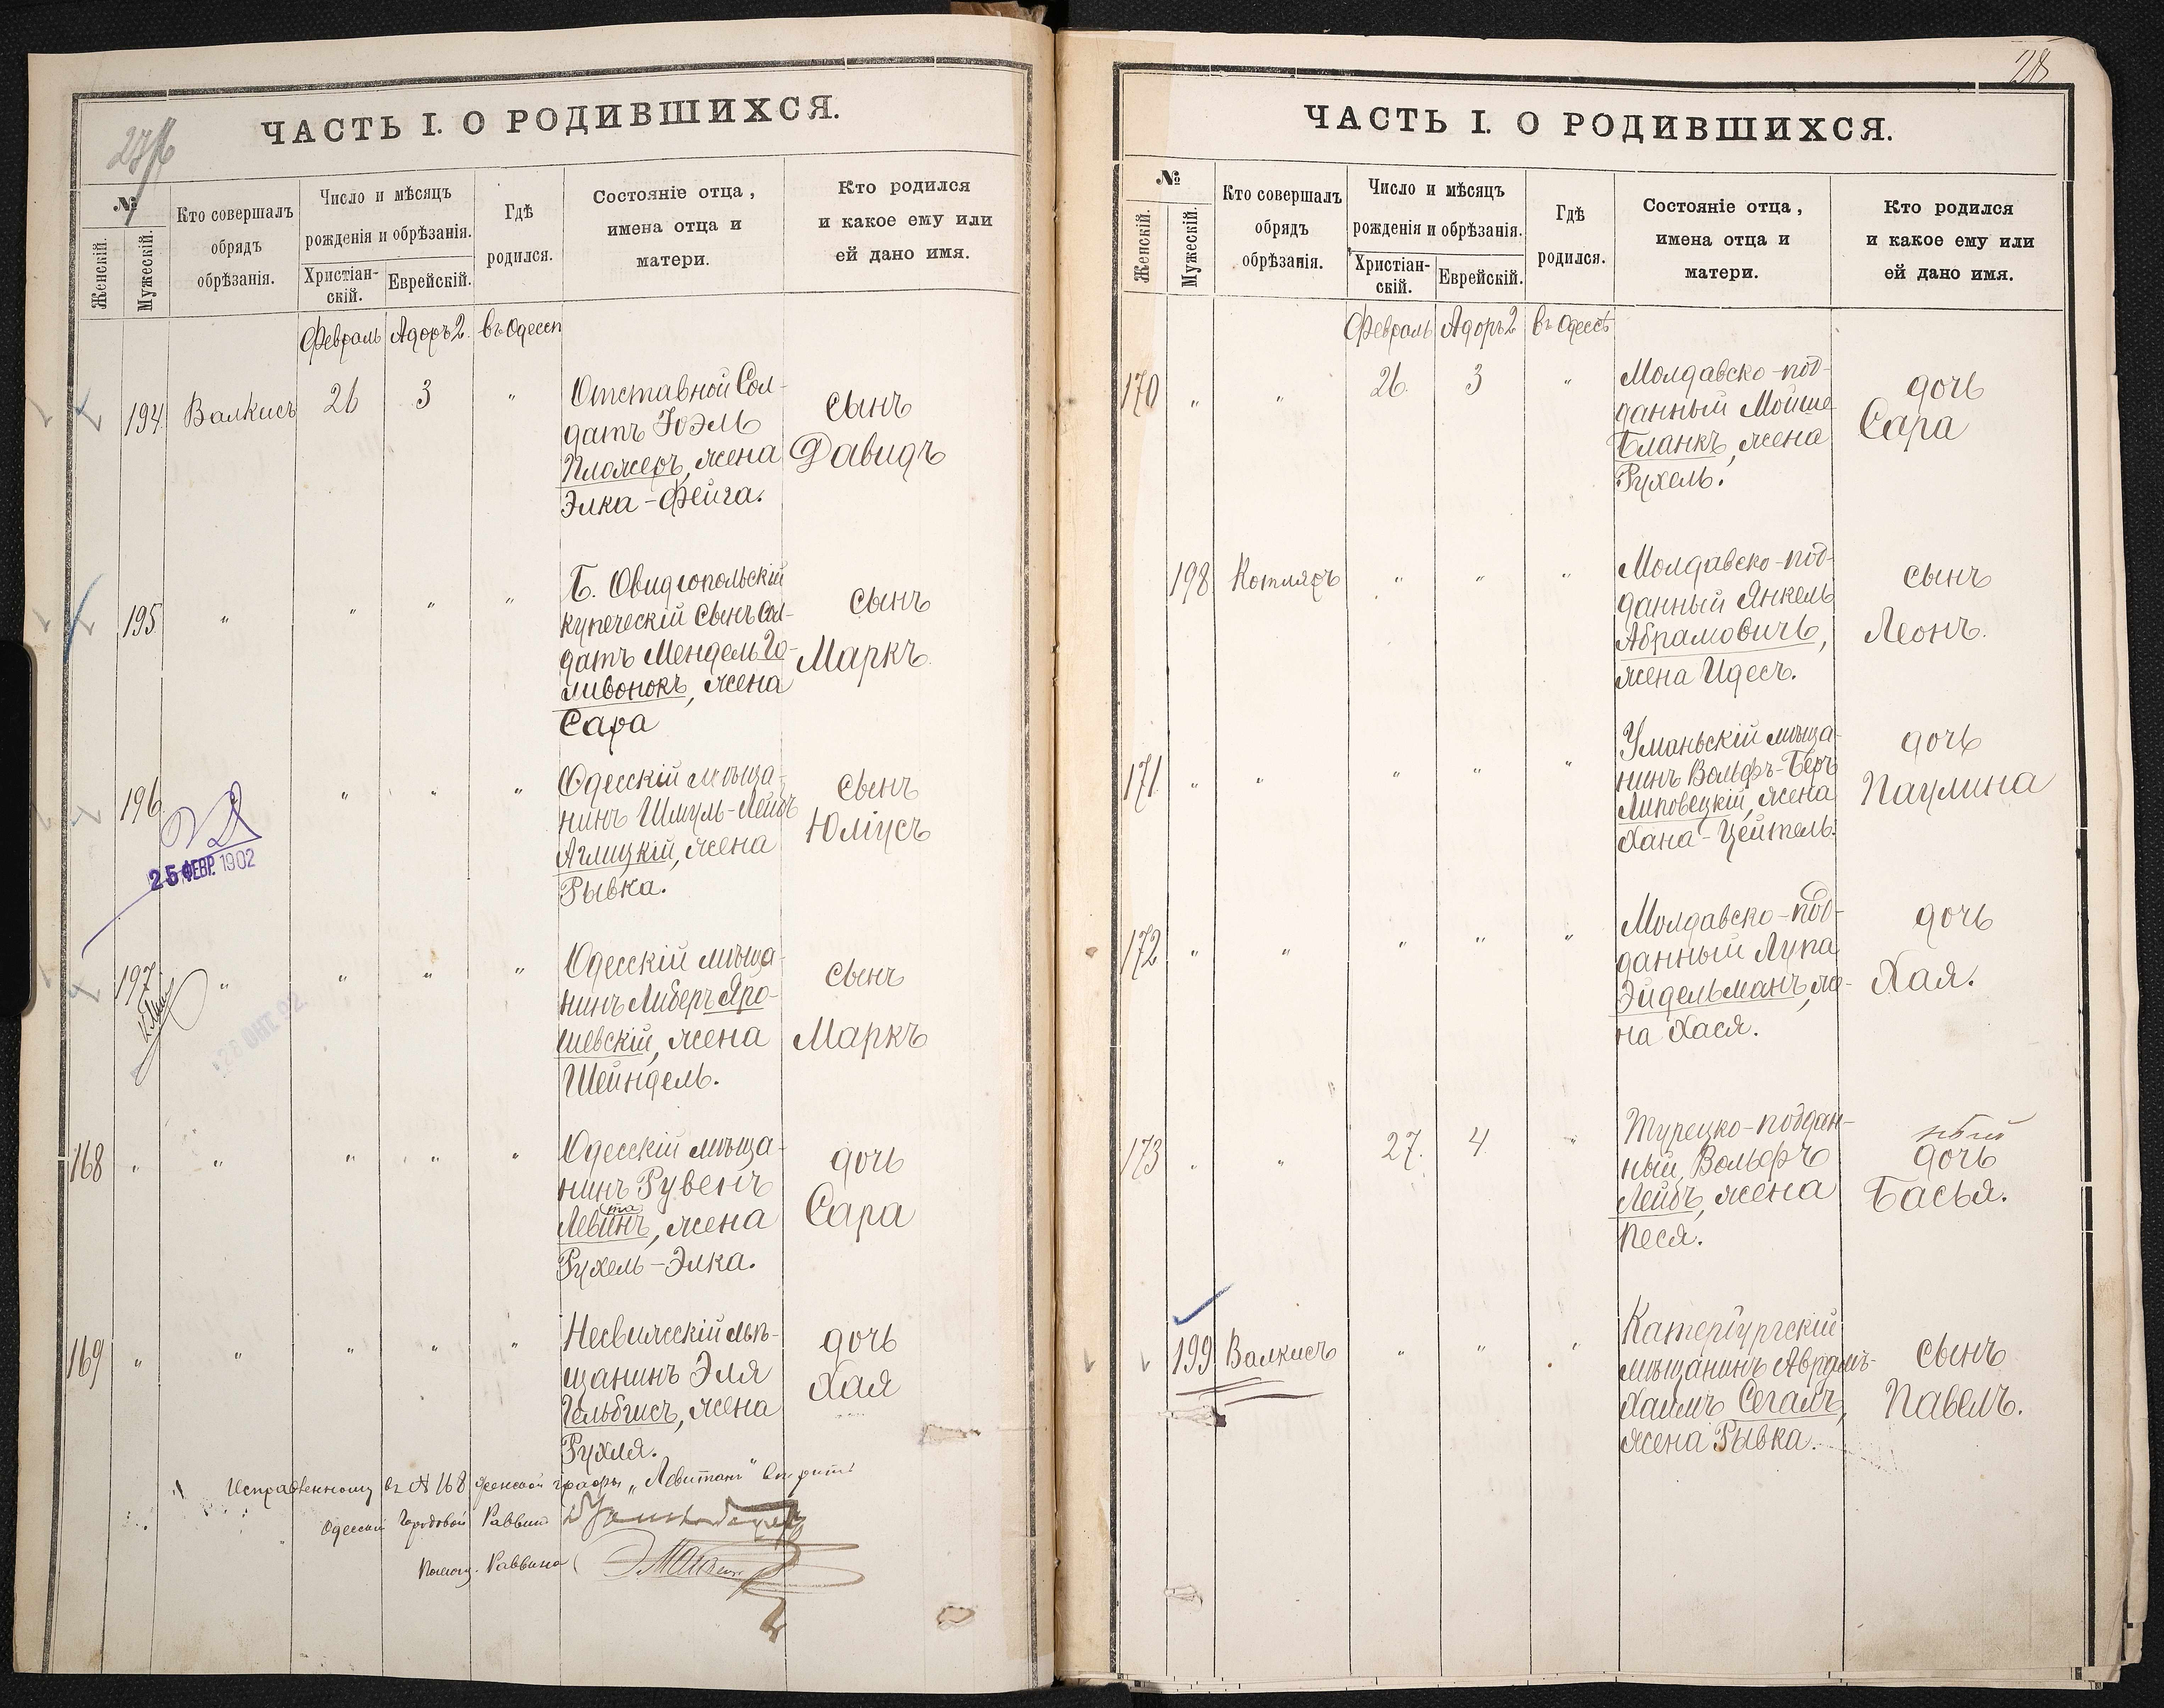 ЧАСТЬ I. О РОДИВШИХСЯ.
№
Женскій.
Мужескій.
Кто совершалъ
обрядъ
обрѣзанія.
Число и мѣсяцъ
рожденія и обрѣзанія.
Христіан-
скій.
Еврейскій.
Гдѣ
родился.
Состояніе отца,
имена отца и
матери.
Кто родился
и какое ему или
ей дано имя.
Февраль Адоръ 2. въ Одессѣ
194 Валкисъ 26 3 " Отставной Сол-
датъ Іоэль
Пляжеръ, жена
Элка-Фейга.
сынъ
Давидъ
195 " " " " Б. Овидіопольскій
купеческій сынъ Сол-
датъ Мендель Го-
ливонокъ, жена
Сара
сынъ
Маркъ.
196 " " " Одесскій мѣща-
нинъ Шмуль-Лейбъ
Аглицкій, жена
Рывка.
сынъ
Юліусъ
25 ФЕВР. 1902
197 " " " " Одесскій мѣща-
нинъ Либеръ Яро-
шевскій, жена
Шейндель.
сынъ
Маркъ
28 ОКТ. 92
168 " " " " " Одесскій мѣща-
нинъ Рувенъ
та
Левинъ, жена
Рухель-Элка.
дочь
Сара
169 " " " " " Несвижскій мѣ-
щанинъ Эля
Гельбгисъ, жена
Рухля.
дочь
Хая
Исправленному въ № 168 женской графы „Левитанъ" вѣрить
Одесскій Городовой Раввинъ
Помощ. Раввина
28
ЧАСТЬ I. О РОДИВШИХСЯ.
№
Женскій.
Мужескій.
Кто совершалъ
обрядъ
обрѣзанія.
Число и мѣсяцъ
рожденія и обрѣзанія.
Христіан-
скій.
Еврейскій.
Гдѣ
родился.
Состояніе отца,
имена отца и
матери.
Кто родился
и какое ему или
ей дано имя.
Февраль Адоръ 2 въ Одессѣ
170 " " 26. 3 " Молдавско-под-
данный Мойше
Бланкъ, жена
Рухель.
дочь
Сара
198 Котляръ " " " Молдавско-под-
данный Янкель
Абрамовичъ,
жена Идесъ.
сынъ
Леонъ.
171 " " " " " Уманьскій мѣща-
нинъ Вольфъ-Беръ
Липовецкій, жена
Хана-Цейтель.
дочь
Паулина
172 " " " " " Молдавско-под-
данный Лупа
Эйдельманъ, же-
на Хася.
дочь
Хая.
173 " " 27. 4 " Турецко-поддан-
ный, Вольфъ
Лейбъ, жена
Песя.
ный
дочь
Басья.
199 Валкисъ " " " Катербургскій
мѣщанинъ Аврамъ-
Хаимъ Сегалъ,
жена Рывка.
сынъ
Павелъ.